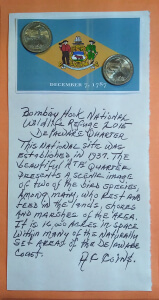 DECEMBER 7, 1787
Bombay Hook National
Wildlife Refuge 2015
Delaware Quarter
This national site was
established in 1937. The
beautiful ATB Quarter
presents a scenic image
of two of the bird species,
among many, who rest and
feed in the lands, shores
and marshes of the area.
It is 16,000 acres in space
within many of the natural
set areas of the Delaware
Coast.